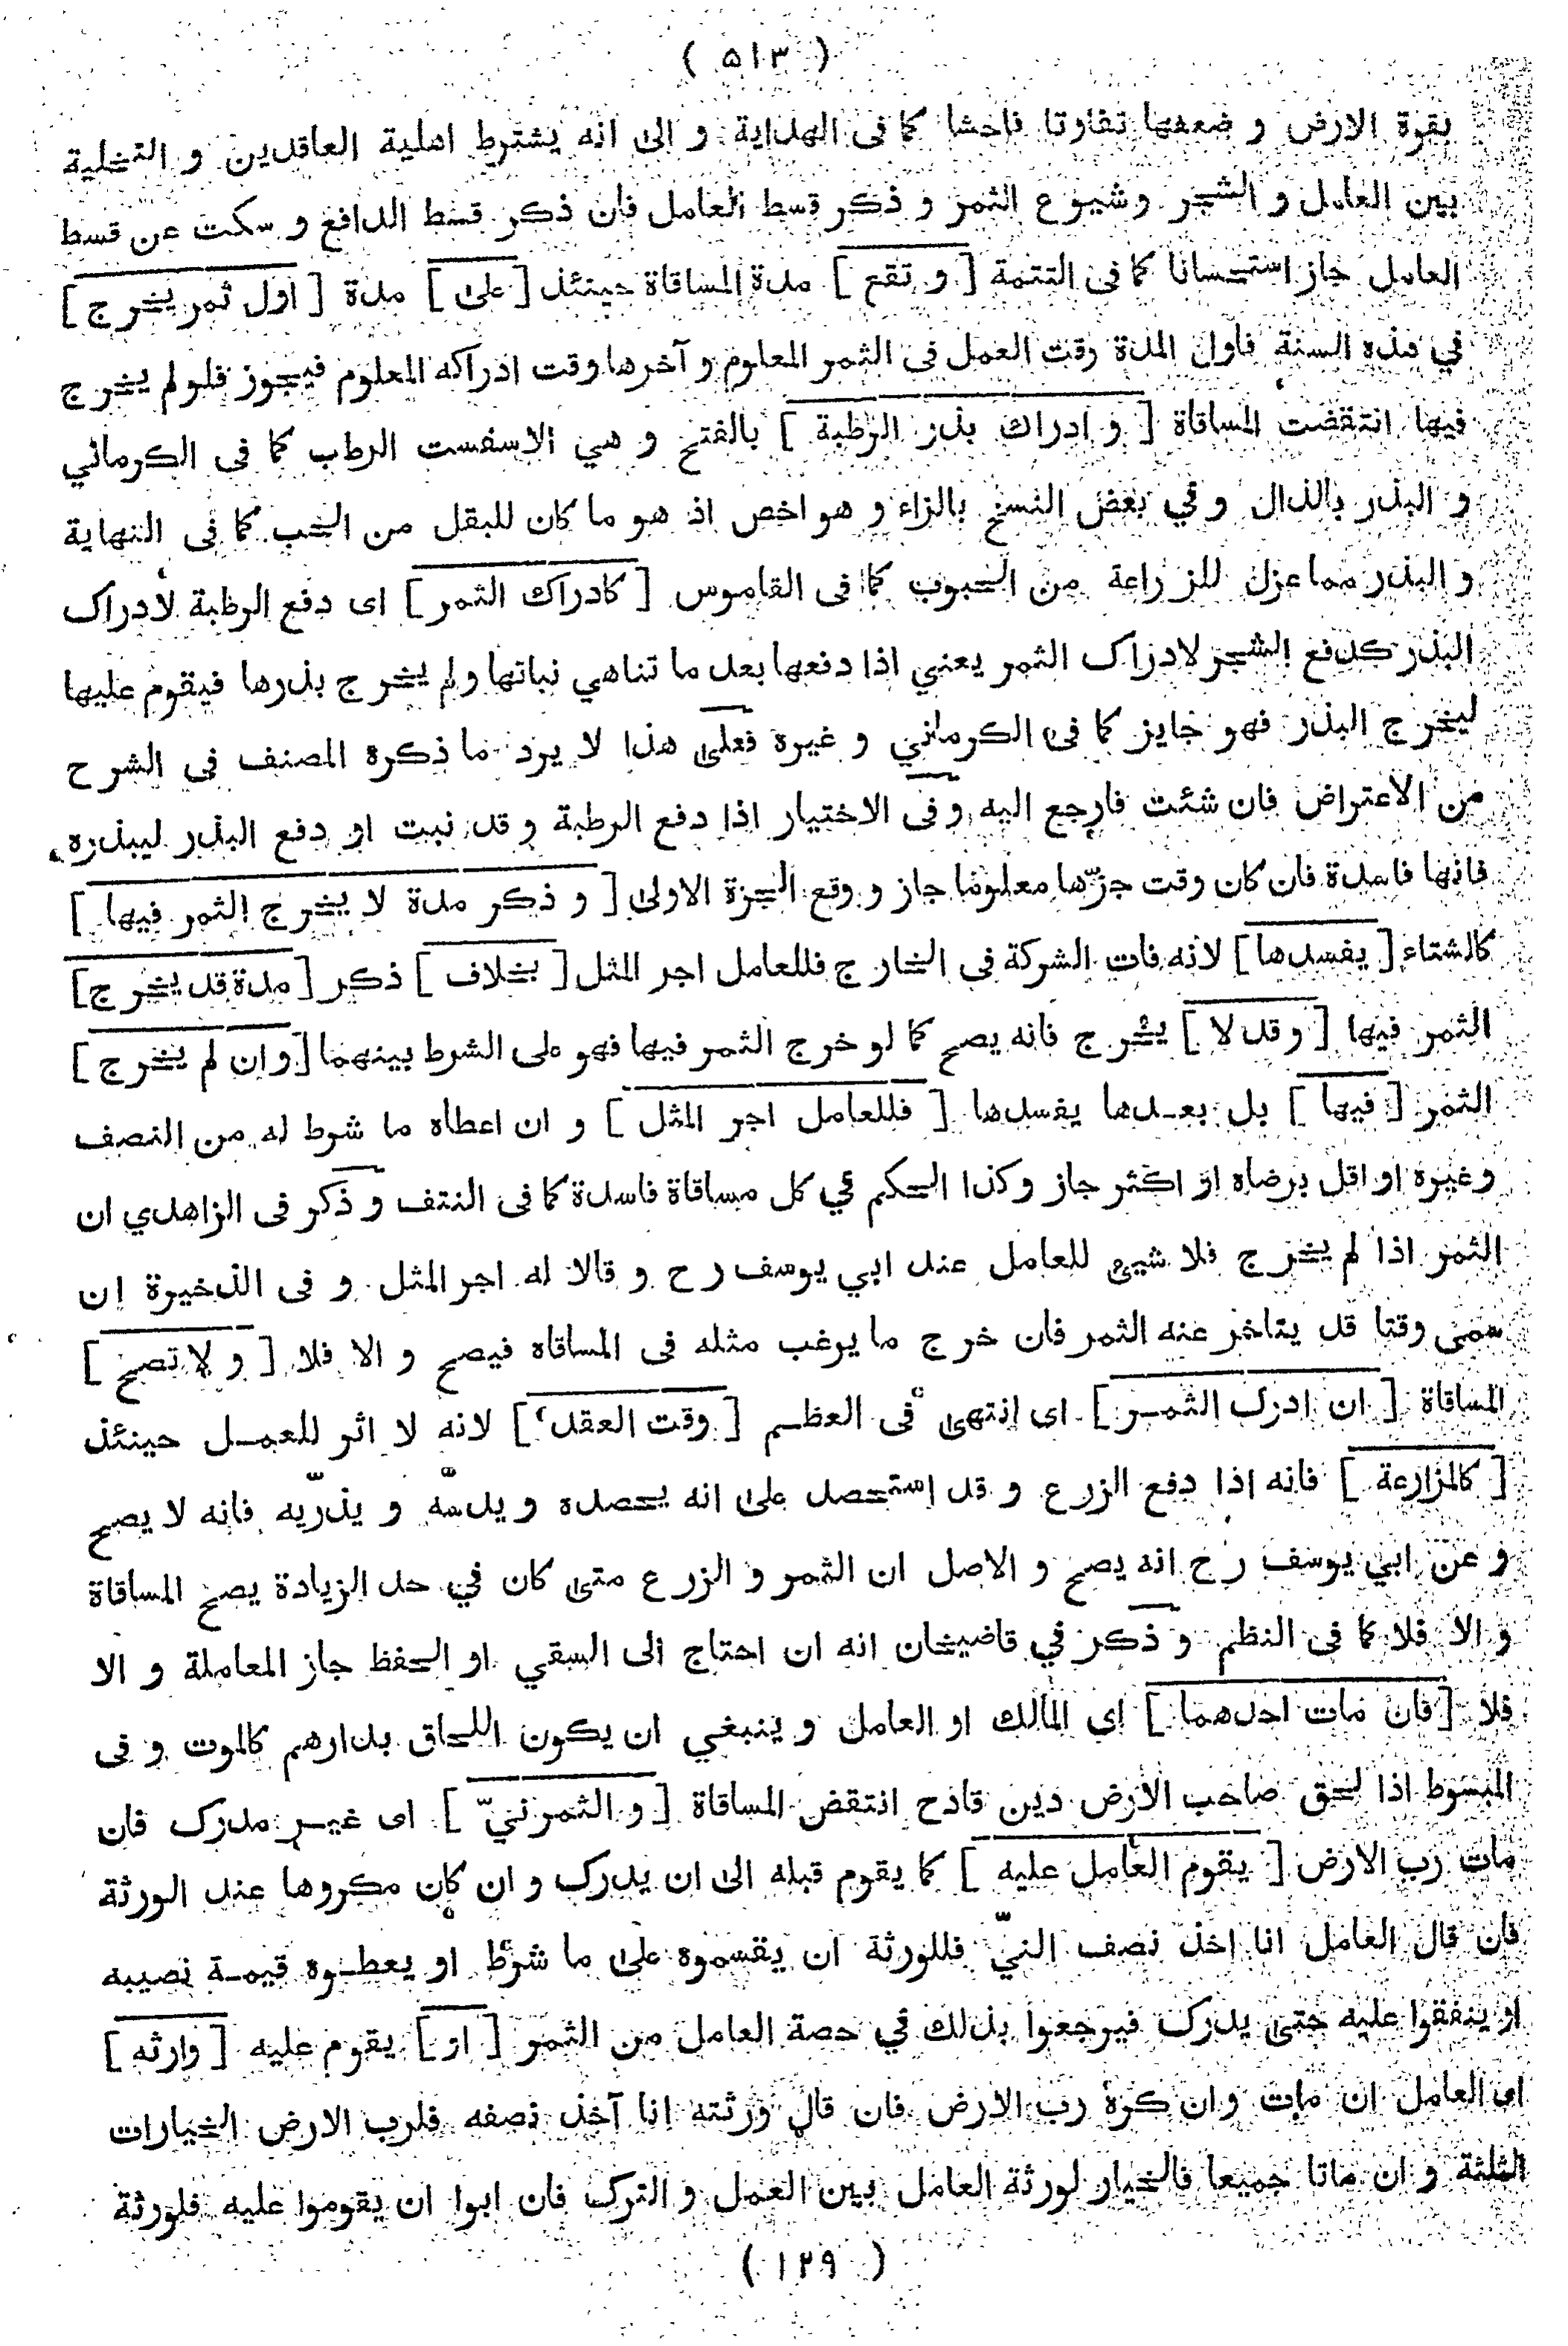 ( ٥١٣ )
بقوة الارض و ضعفها تفاوتا فاحشا كما فى الهداية و الى انه يشترط اهلية العاقدين و التخلية
بين العامل و الشجر وشيوع الثمر و ذكر قسط العامل فان ذكر قسط الدافع و سكت عن قسط
العامل جاز استحسانا كما فى التتمة [ و تقع ] مدة المساقاة حينئذ [ على ] مدة [ اول ثمر يخرج ]
في هذه السنة فاول المدة وقت العمل فى الثمر المعلوم و آخرها وقت ادراكه المعلوم فيجوز فلو لم يخرج
فيها انتقضت المساقاة [ و ادراك بذر الرطبة ] بالفتح و هي الاسفست الرطاب كما فى الكرماني
و البذر بالذال وفي بعض النسخ بالزاء و هو اخص اذ هو ما كان للبقل من الحب كما فى النهاية
و البذر مما عزل للزراعة من الحبوب كما فى القاموس [ كادراك الثمر ] اى دفع الرطبة لادراك
البذر كدفع الشجر لادراك الثمر يعني اذا دفعها بعد ما تناهي نباتها ولم يخرج بذرها فيقوم عليها
ليخرج البذر فهو جايز كما فى الكرماني و غيره فعلى هذا لا يرد ما ذكره المصنف فى الشرح
من الاعتراض فان شئت فارجع اليه وفى الاختيار اذا دفع الرطبة و قد نبت او دفع البذر ليبذره
فانها فاسدة فان كان وقت جزّها معلوما جاز و وقع الجزة الاولى [ و ذكر مدة لا يخرج الثمر فيها ]
كالشتاء [ يفسدها ] لانه فات الشركة فى الخارج فللعامل اجر المثل [ بخلاف ] ذكر [ مدة قد يخرج ]
الثمر فيها [ وقد لا ] يخرج فانه يصح كما لو خرج الثمر فيها فهو على الشرط بينهما [ وان لم يخرج ]
الثمر [ فيها ] بل بعدها يفسدها [ فللعامل اجر المثل ] و ان اعطاه ما شرط له من النصف
وغيره او اقل برضاه او اكثر جاز وكذا الحكم في كل مساقاة فاسدة كما فى النتف و ذكر فى الزاهدي ان
الثمر اذا لم يخرج فلا شيئ للعامل عند ابي يوسف رح و قالا له اجر المثل و فى الذخيرة ان
سمى وقتا قد يتاخر عنه الثمر فان خرج ما يرغب مثله فى المساقاه فيصح و الا فلا [ و لا تصح ]
المساقاة [ ان ادرك الثمر ] اى انتهى فى العظم [ وقت العقد ] لانه لا اثر للعمل حينئذ
[ كالمزارعة ] فانه اذا دفع الزرع و قد استحصد على انه يحصده و يدسّه و يذرّيه فانه لا يصح
و عن ابي يوسف رح انه يصح و الاصل ان الثمر و الزرع متى كان في حد الزيادة يصح المساقاة
و الا فلا كما فى النظم و ذكر في قاضيخان انه ان احتاج الى السقي او الحفظ جاز المعاملة و الا
فلا [ فان مات احدهما ] اى المالك او العامل و ينبغي ان يكون اللحاق بدارهم كالموت و فى
المبسوط اذا لحق صاحب الارض دين فادح انتقض المساقاة [ و الثمر نيّ ] اى غير مدرك فان
مات رب الارض [ يقوم العامل عليه ] كما يقوم قبله الى ان يدرك و ان كان مكروها عند الورثة
فان قال العامل انا اخذ نصف النيّ فللورثة ان يقسموه على ما شرط او يعطوه قيمة نصيبه
او ينفقوا عليه حتى يدرك فيرجعوا بذلك في حصة العامل من الثمر [ او ] يقوم عليه [ وارثه ]
اى العامل ان مات وان كره رب الارض فان قال ورثته انا آخذ نصفه فلرب الارض الخيارات
الثلثة و ان ماتا جميعا فالخيار لورثة العامل بين العمل و الترك فان ابوا ان يقوموا عليه فلورثة
( ١٢٩ )